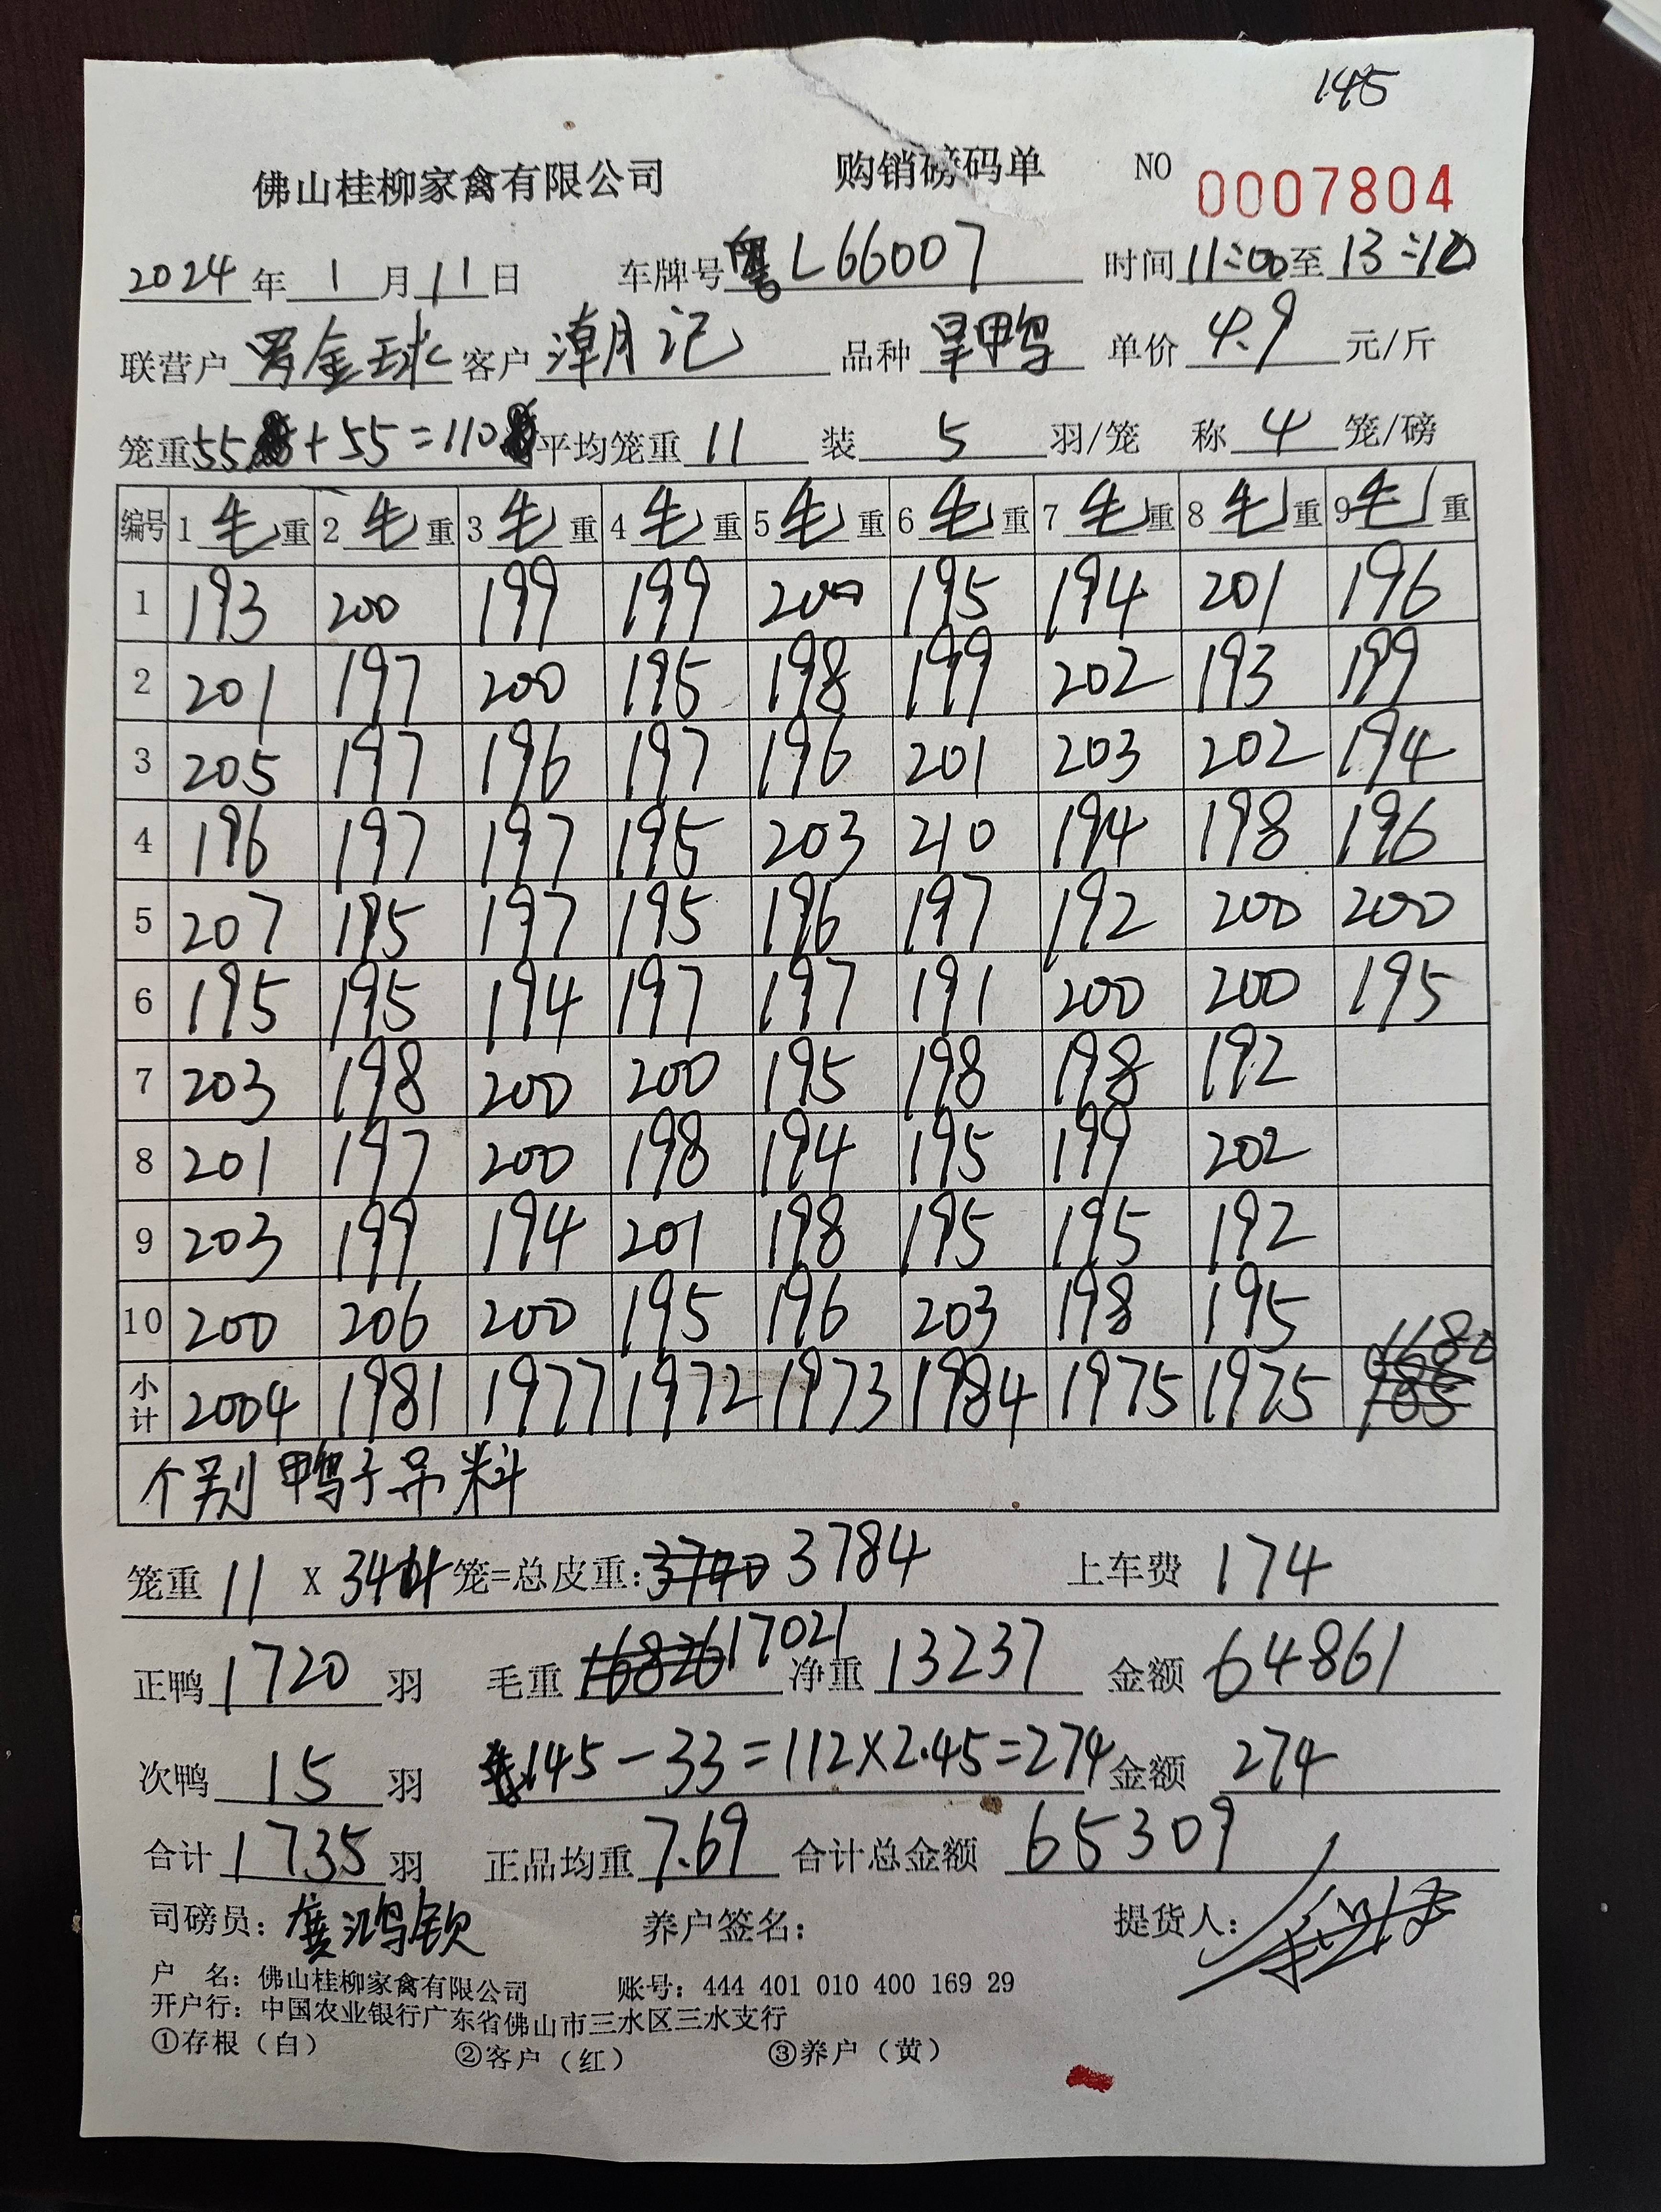 145
佛山桂柳家禽有限公司 购销磅码单 NO 0007804
2024年1月11日 车牌号粤L66007 时间11:00至13:10
联营户罗金球 客户潮记 品种旱鸭 单价4.9元/斤
笼重55+55=110 平均笼重11 装5羽/笼 称4笼/磅
编号 1毛重 2毛重 3毛重 4毛重 5毛重 6毛重 7毛重 8毛重 9毛重
1 193 200 199 199 200 195 194 201 196
2 201 197 200 195 198 199 202 193 199
3 205 197 196 197 196 201 203 202 194
4 196 197 197 195 203 210 194 198 196
5 207 195 197 195 196 197 192 200 200
6 195 195 194 197 197 191 200 200 195
7 203 198 200 200 195 198 198 192
8 201 197 200 198 194 195 199 202
9 203 199 194 201 198 195 195 192
10 200 206 200 195 196 203 198 195
小计 2004 1981 1977 1972 1973 1984 1975 1975 1180
个别鸭子吊料
笼重11X344笼=总皮重:3740 3784 上车费174
正鸭1720羽 毛重16826 17021 净重13237 金额64861
次鸭15羽 145-33=112×2.45=274 金额274
合计1735羽 正品均重7.69 合计总金额65309
司磅员: 鸿钦 养户签名: 提货人:
户 名: 佛山桂柳家禽有限公司 账号: 444 401 010 400 169 29
开户行: 中国农业银行广东省佛山市三水区三水支行
①存根(白) ②客户(红) ③养户(黄)